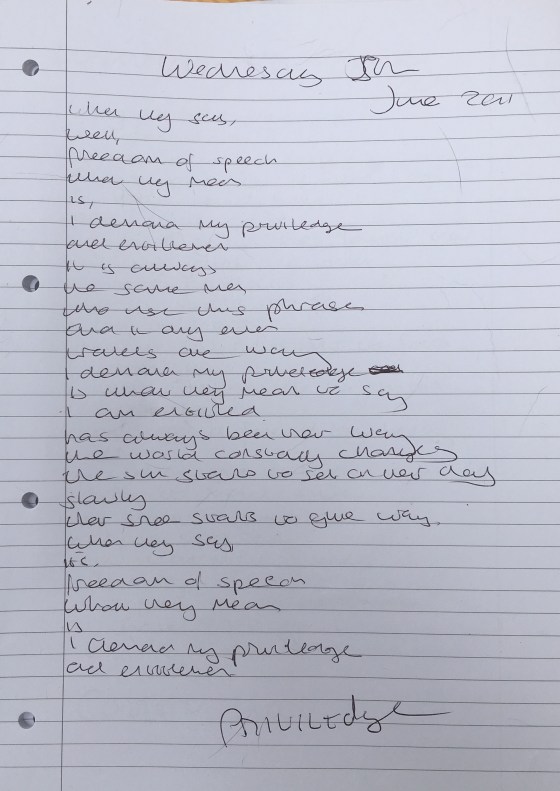 Wednesday
June 2011
when they say,
well,
freedom of speech
what they mean
is,
I demand my priviledge
and entitlement
It is always
the same men
who use this phrase
and it only ever
travels one way
I demand my priviledge
Is what they mean to say
I am entitled
has always been their way
the world constantly changes
the sun starts to set on their day
slowly
their starts to give way.
when they say,
freedom of speech
what they mean
is
I demand my priviledge
and entitlement
PRIVILEdge